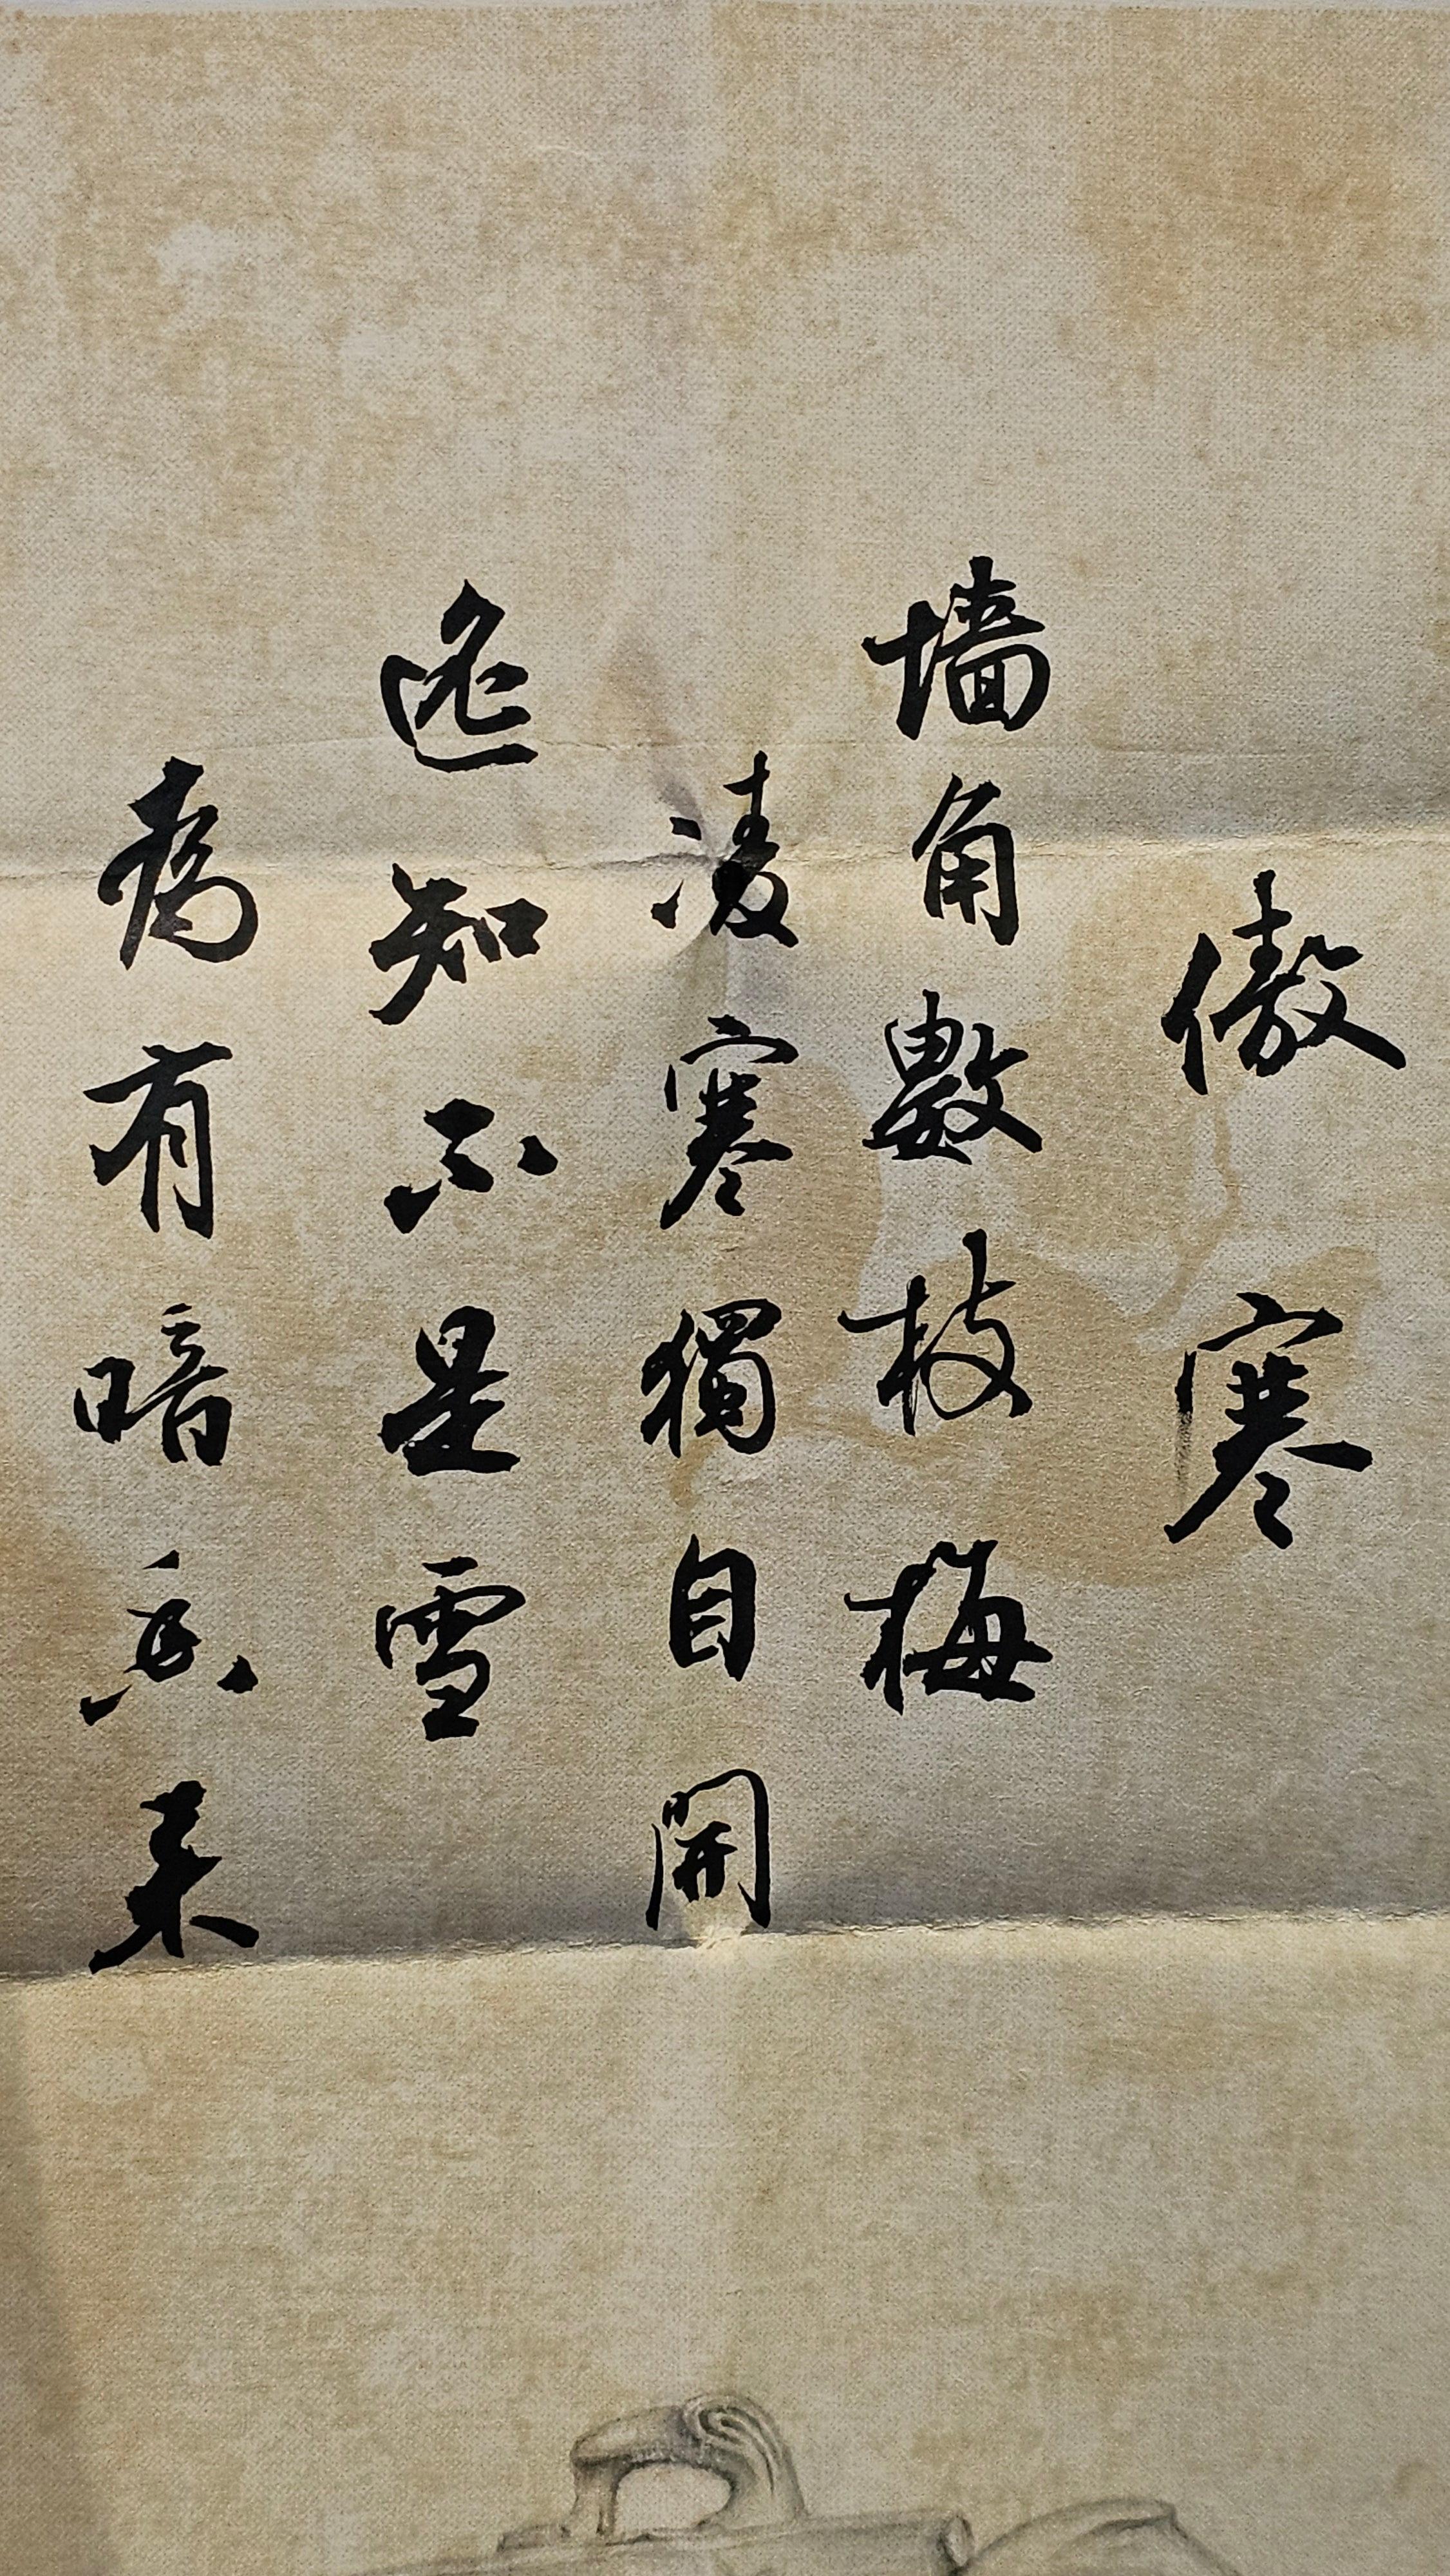 傲寒
墙角數枝梅
凌寒獨自開
遙知不是雪
為有暗香来